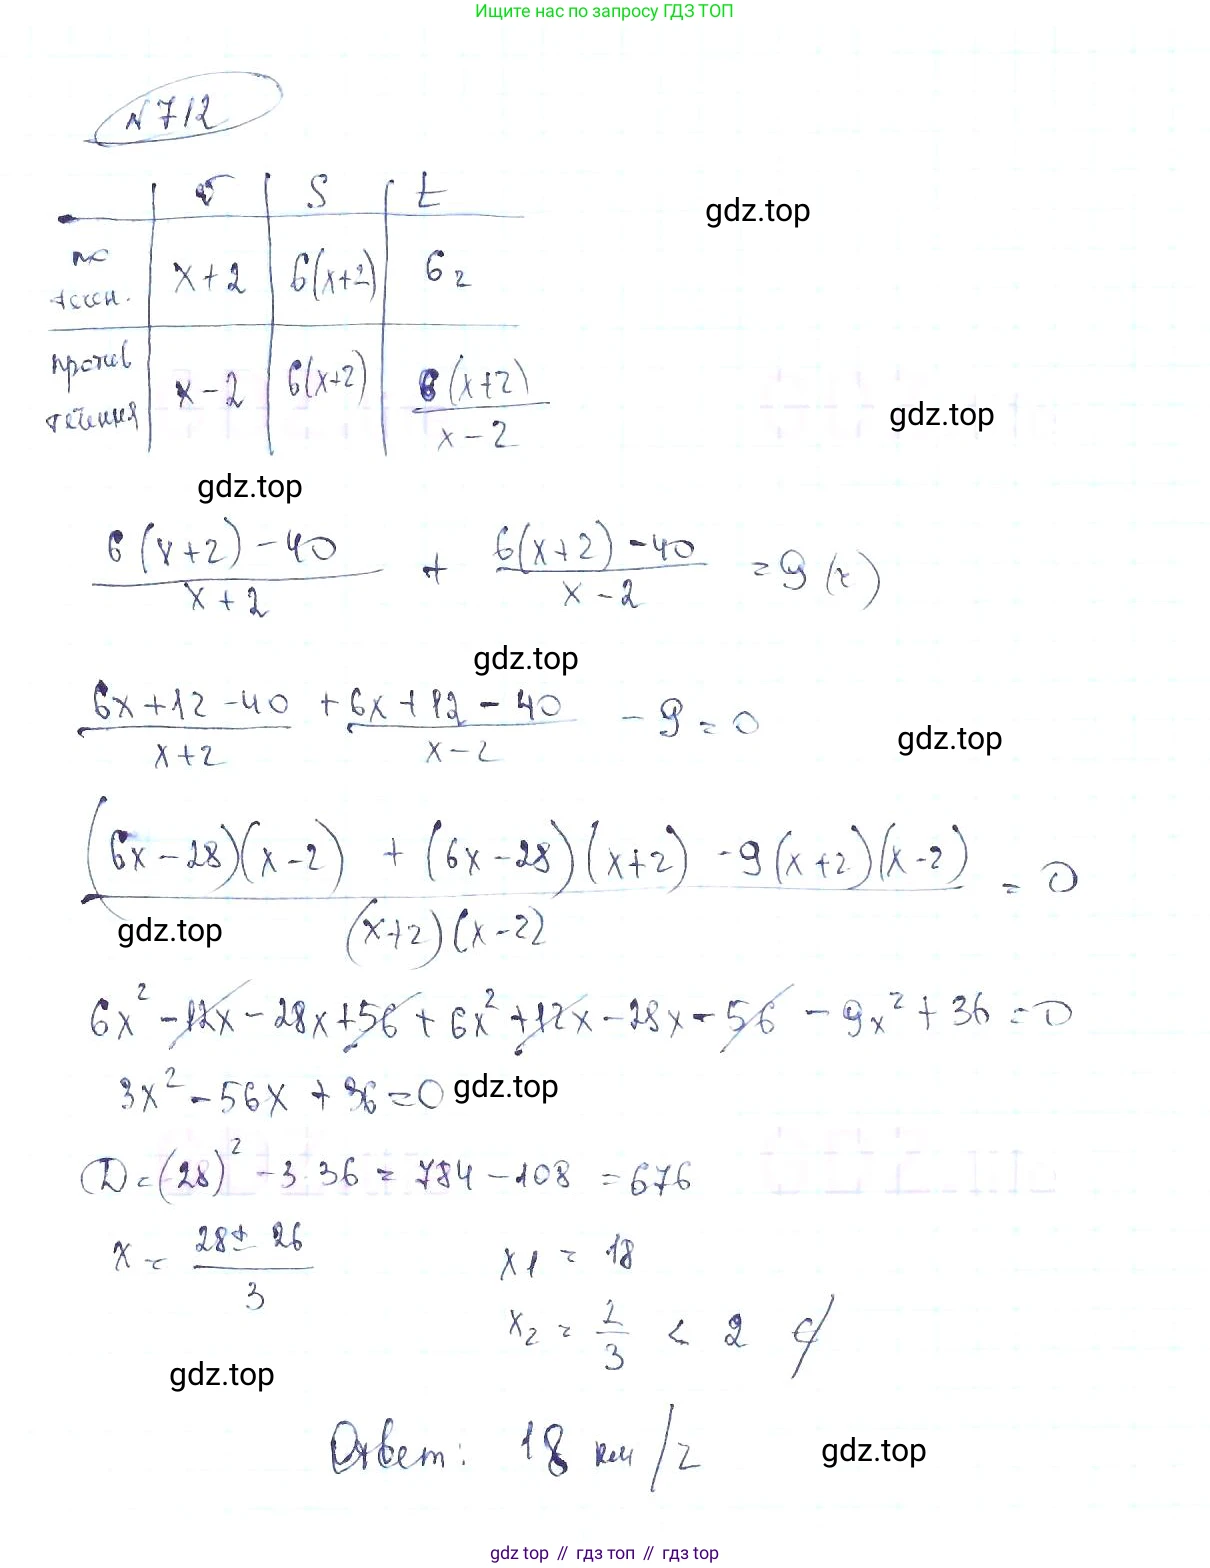 Ищите нас по запросу ГДЗ ТОП
N 712
v S t
gdz.top
по течен. x+2 6(x+2) 6 ч
против течения x-2 6(x+2) 6(x+2)/(x-2)
gdz.top
gdz.top
(6(x+2)-40)/(x+2) + (6(x+2)-40)/(x-2) = 9 (ч)
gdz.top
(6x+12-40)/(x+2) + (6x+12-40)/(x-2) - 9 = 0
gdz.top
((6x-28)(x-2) + (6x-28)(x+2) - 9(x+2)(x-2))/((x+2)(x-2)) = 0
gdz.top
6x² - 12x - 28x + 56 + 6x² + 12x - 28x - 56 - 9x² + 36 = 0
3x² - 56x + 36 = 0
gdz.top
D = (28)² - 3·36 = 784 - 108 = 676
x = (28 ± 26)/3 x1 = 18
x2 = 2/3 < 2 ∉
gdz.top
Ответ: 18 км/ч
gdz.top
gdz top // гдз топ // gdz top